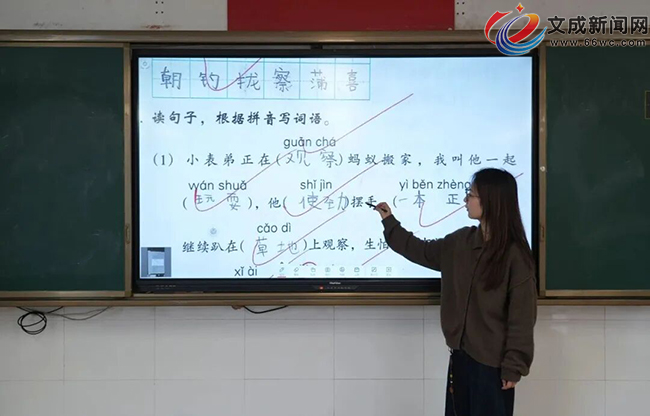 文成新闻网
WWW.66WC.COM
朝 钓 拢 察 蒲 喜
读句子，根据拼音写词语。
guān chá
(1) 小表弟正在(观察)蚂蚁搬家，我叫他一起
wán shuǎ shǐ jìn yì běn zhèng
(玩耍)，他(使劲)摆手，(一本正
cǎo dì
继续趴在(草地)上观察，生怕
xǐ ài